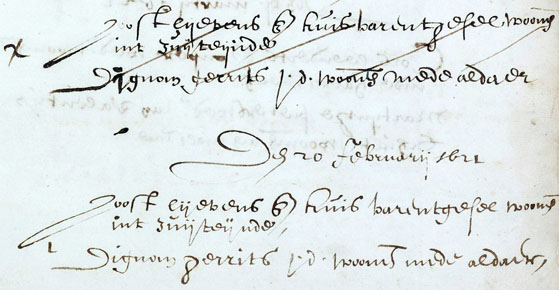 Joost Lievens JG kuis barentgesel woonen
int Zuijteijnde
Dignom gerrits j.d. woonen mede aldaer
Den 20 february 1621
Joost Lievens JG kuis barentgesel woonen
int Zuijteijnde
Dignom gerrits j.d. woonen mede aldaer